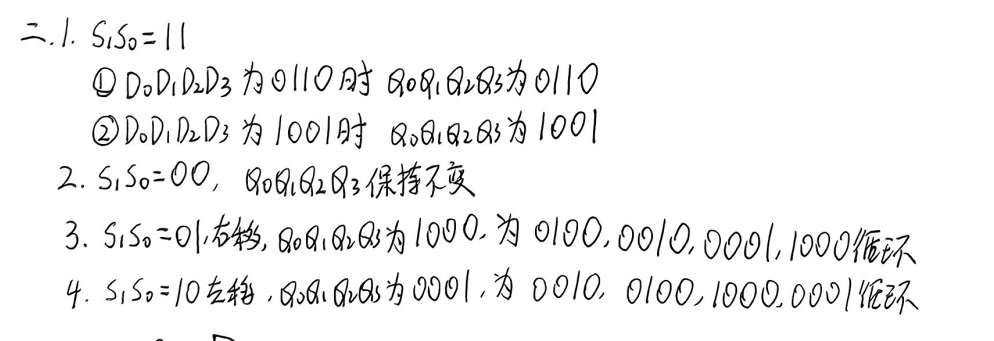 二.1. S₁S₀=11
① D₀D₁D₂D₃ 为 0110 时 Q₀Q₁Q₂Q₃为 0110
② D₀D₁D₂D₃ 为 1001时 Q₀Q₁Q₂Q₃为 1001
2. S₁S₀=00, Q₀Q₁Q₂Q₃ 保持不变
3. S₁S₀=01,右移, Q₀Q₁Q₂Q₃为 1000, 为 0100, 0010, 0001, 1000循环
4. S₁S₀=10 左移, Q₀Q₁Q₂Q₃为 0001, 为 0010, 0100, 1000, 0001循环